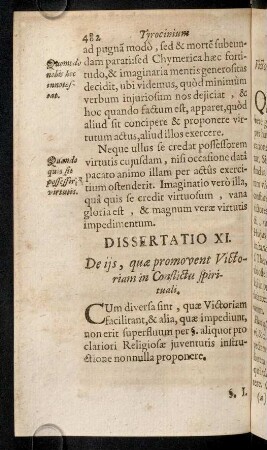 482 Tyrocinium
ad pugnã modò, sed & mortẽ subeun-
Quomodo
nobis hoc
innotes-
cat.
dam paratis sed Chymerica hæc forti-
tudo, & imaginaria mentis generositas
decidit, ubi videmus, quòd minimum
verbum injuriosum nos dejiciat, &
hoc quando factum est, apparet, quòd
aliud sit concipere & proponere vir-
tutum actus, aliud illos exercere.
Quando
quis sit
possessor
virtutis.
Neque ullus se credat possessorem
virtutis cujusdam, nisi occasione datâ
pacato animo illam per actus exerci-
tium ostenderit. Imaginatio verò illa,
quâ quis se credit virtuosum, vana
gloria est, & magnum veræ virtutis
impedimentum.
DISSERTATIO XI.
De ijs, quæ promovent Victo-
riam in Conflictu spiri-
tuali.
CUm diversa sint, quæ Victoriam
facilitant, & alia, quæ impediunt,
non erit superfluum per §. aliquot pro
clariori Religiosæ juventutis instru-
ctione nonnulla proponere.
§. I.